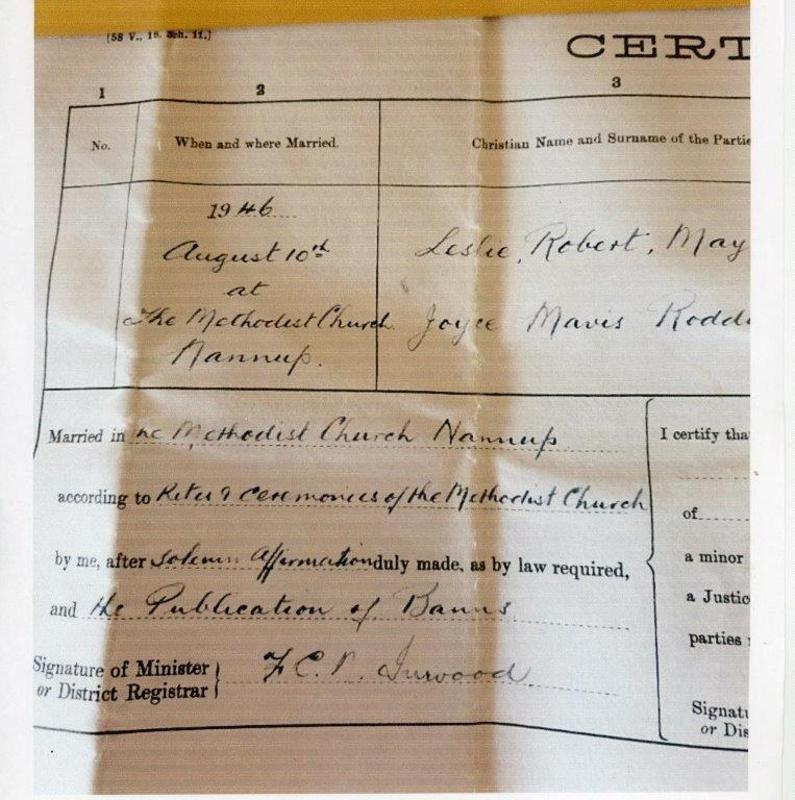 [58 V., 16. Sch. 11.]
CERT
1 2 3
No. When and where Married. Christian Name and Surname of the Partie
1946
August 10th
at
The Methodist Church
Nannup.
Leslie, Robert, May
Joyce Mavis Rodd
Married in The Methodist Church Nannup
according to Rites & Ceremonies of the Methodist Church
by me, after Solemn Affirmation duly made, as by law required,
and the Publication of Banns
Signature of Minister
or District Registrar
F C. Inwood
I certify tha
of
a minor
a Justic
parties
Signatu
or Dis